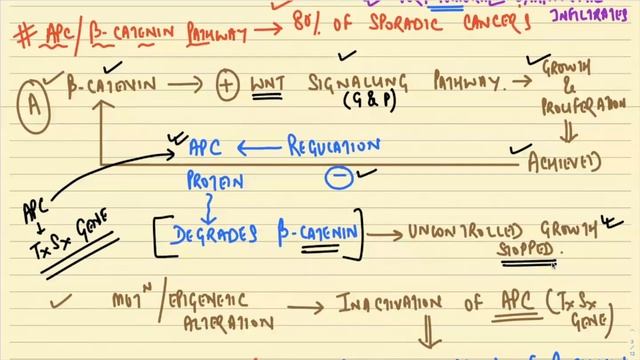 INFILTRATES
# APC/β-CATENIN PATHWAY → 80% OF SPORADIC CANCERS
A β-CATENIN → + WNT SIGNALLING PATHWAY → GROWTH & PROLIFERATION
(G & P)
APC ← REGULATION
ACHIEVED
PROTEIN
−
APC
↓
TxSx GENE
[DEGRADES β-CATENIN] → UNCONTROLLED GROWTH
STOPPED.
MUTᴺ/EPIGENETIC ALTERATION → INACTIVATION OF APC (TxSx GENE)